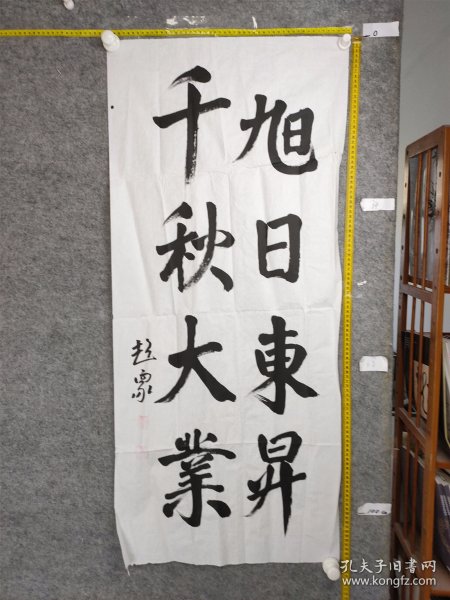 旭日東昇
千秋大業
0
100
孔夫子旧书网
www.kongfz.com